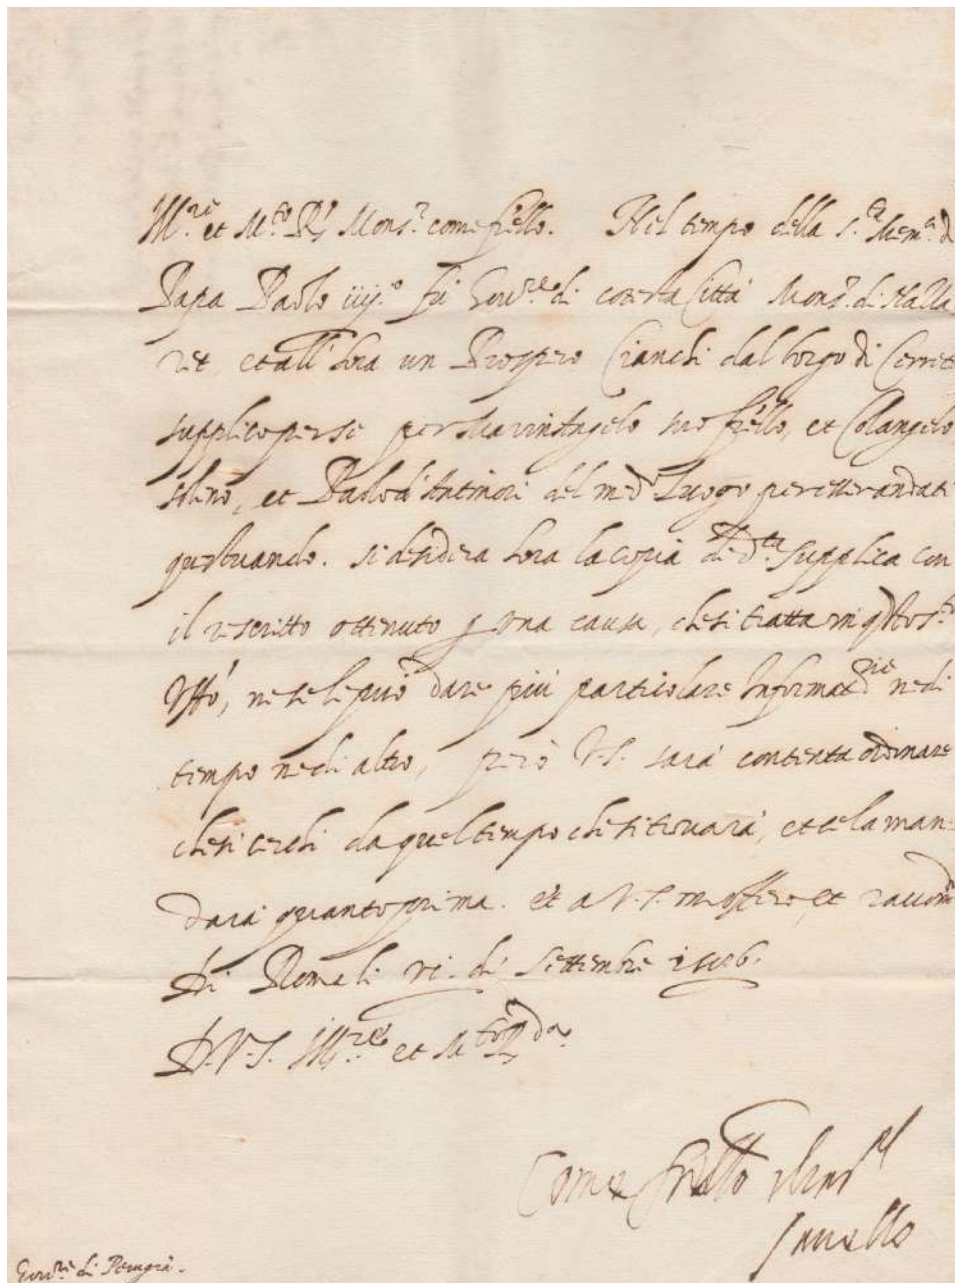 Ill.re et M.to R.do Mons.r come fr̃ello. Nel tempo della S.ta Mem.a di
Papa Paolo iiij.o fu Gov.re di cotesta Città Mons.r di
et all'hora un Prospero Cianchi dal borgo di Cerret
supplicò per se per suo fr̃ello, et Colangelo
et Paolo d'Antinori del med.o luogo per esser andati
questuando. si desidera hora la copia de d.ta supplica con
il rescritto ottenuto p una causa, che si tratta in q.to s.to
Uff.o, ne se le può dare più particolare Informat.ne ne di
tempo ne di altro, però V.S. sarà contenta ordinare
che si cerchi da quel tempo che si trovarà, et se la man=
darà quanto prima. et a V.S. m'offero, et raccom.do
Di Roma li vi. di Settembre
D. V. S. Ill.re et M.to R.da
Come fratello
Gov.re di Perugia.